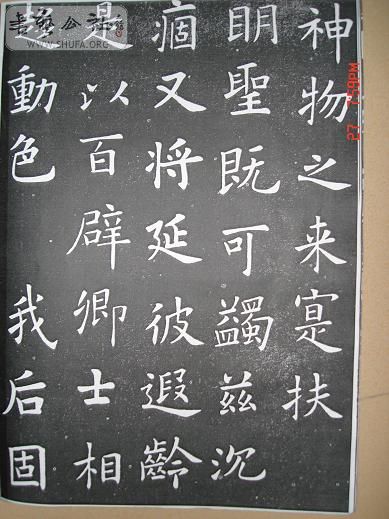 神物之来寔扶
眀聖既可蠲兹沉
痼又将延彼遐齡
是以百辟卿士相
動色 我后固
WWW.SHUFA.ORG